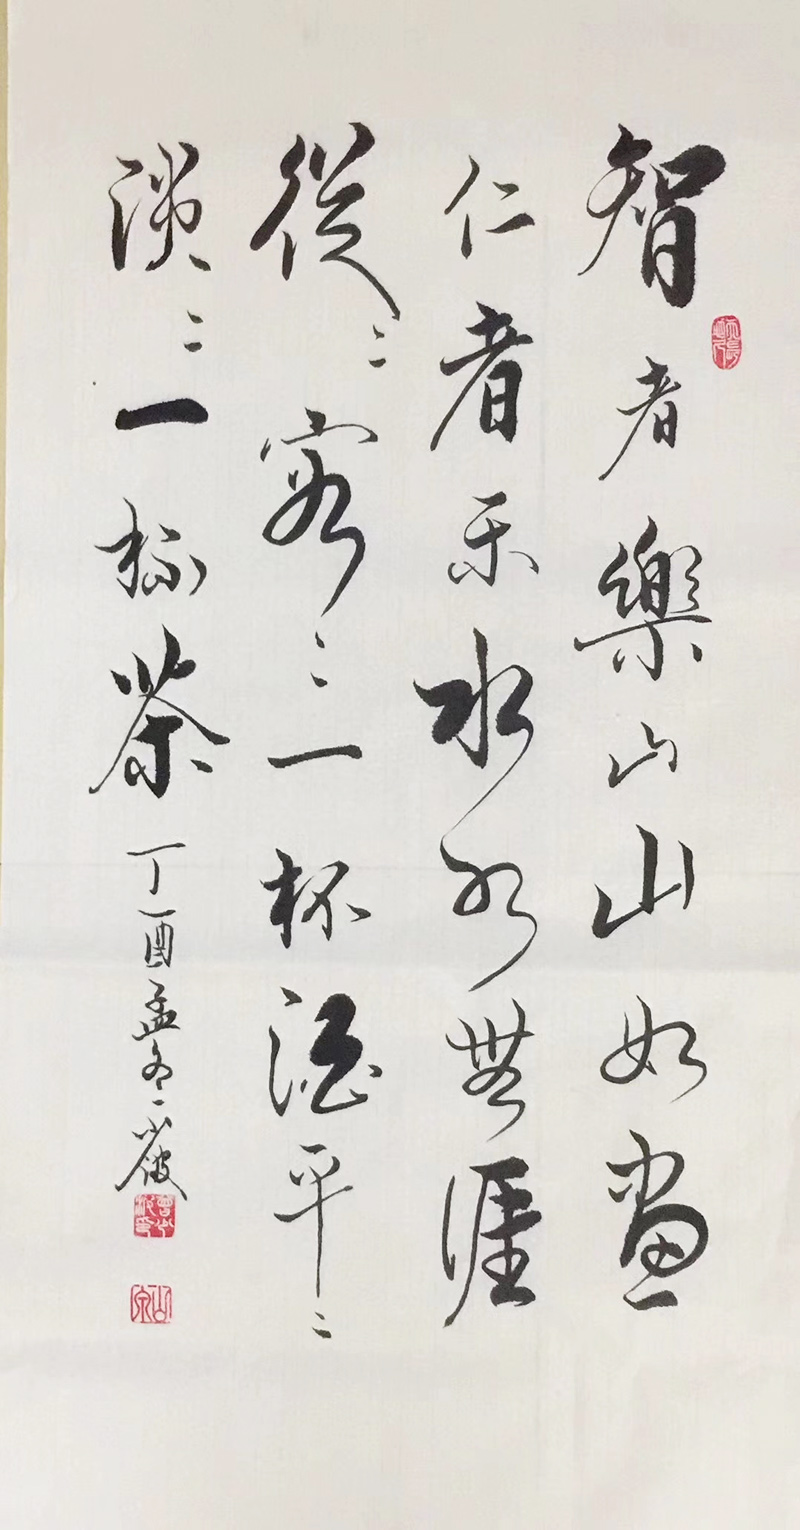 智者樂山山如畫
仁者乐水水無涯
從〻容〻一杯酒平〻
淡〻一杯茶
丁酉孟冬